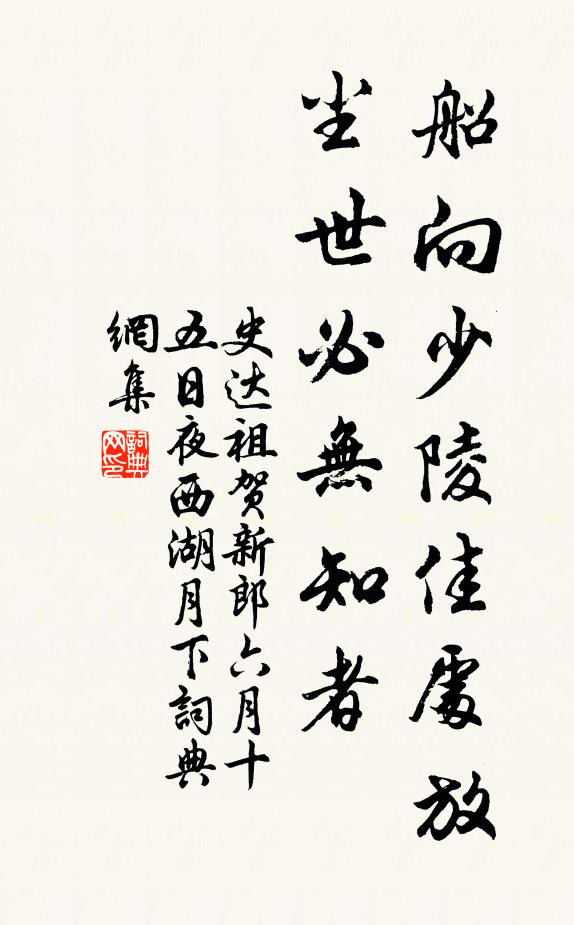 船向少陵佳處放
尘世必無知者
史达祖贺新郎六月十
五日夜西湖月下詞典
網集
詞典
网印